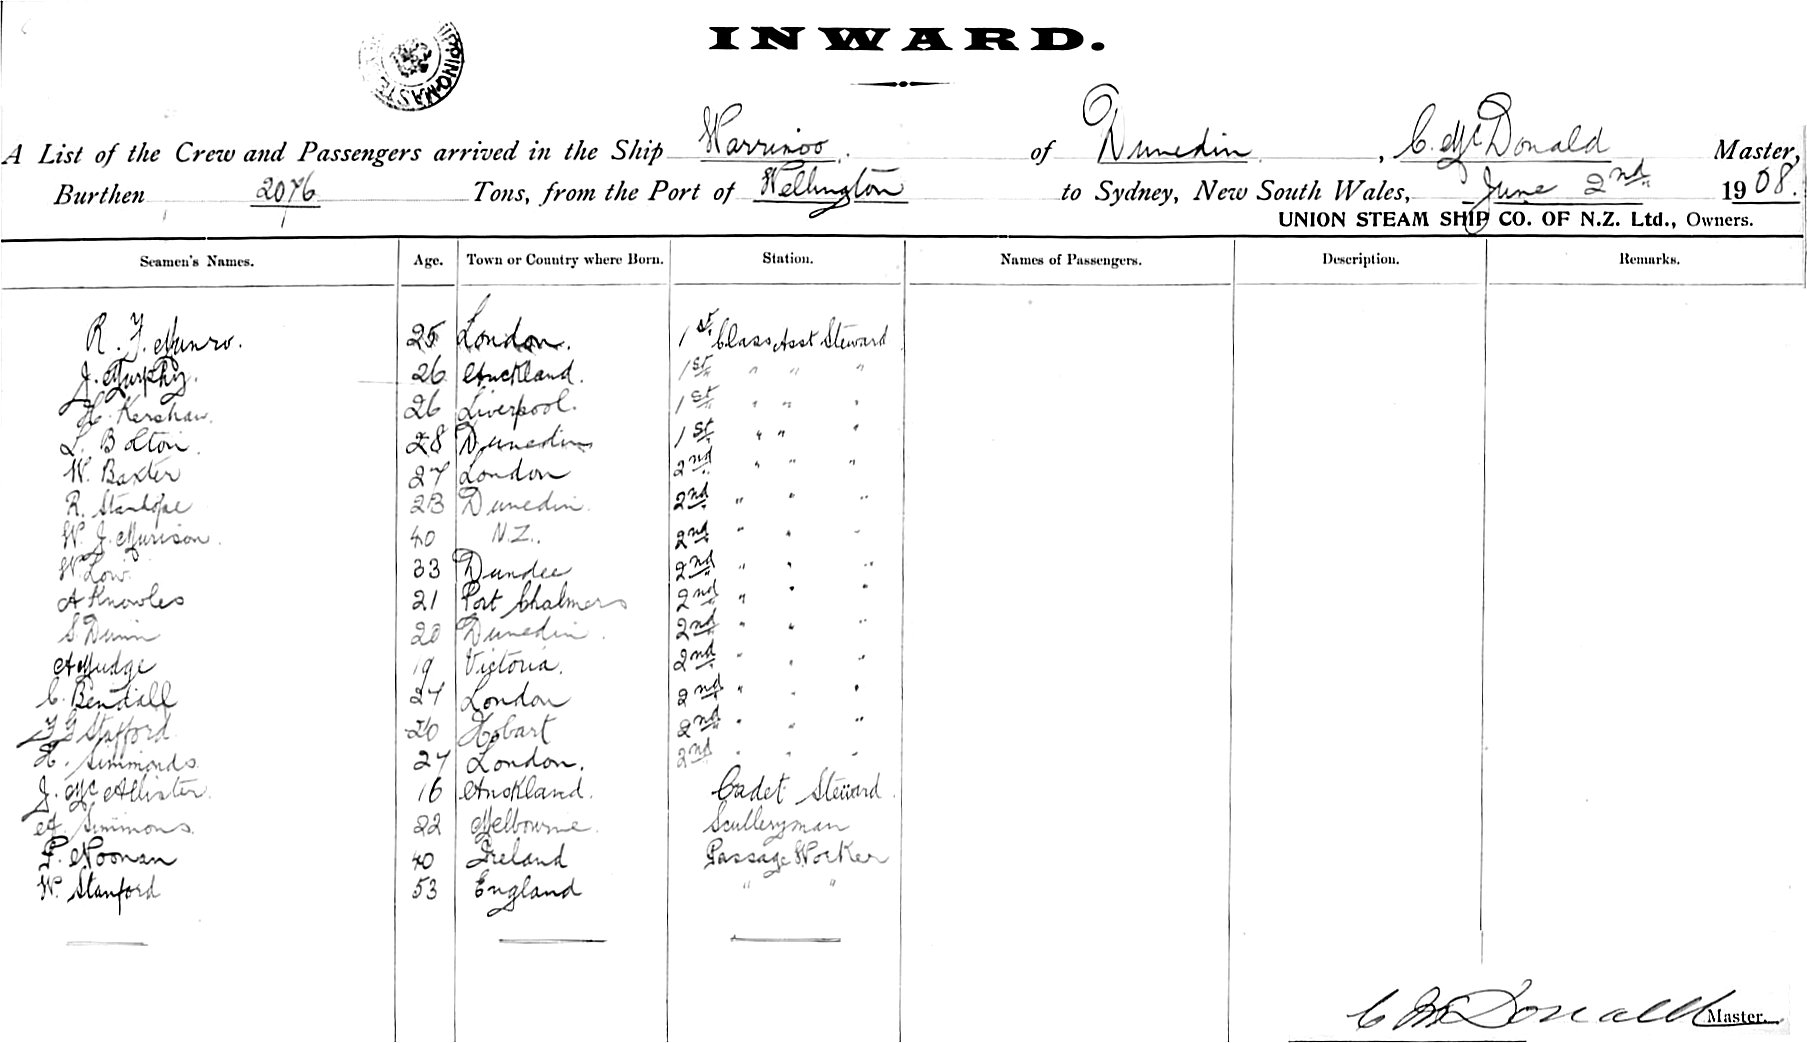 SHIPPING MASTE
INWARD.
A List of the Crew and Passengers arrived in the Ship Warrimoo of Dunedin, C. McDonald Master,
Burthen 2076 Tons, from the Port of Wellington to Sydney, New South Wales, June 2nd 1908.
UNION STEAM SHIP CO. OF N.Z. Ltd., Owners.
Seamen's Names. Age. Town or Country where Born. Station. Names of Passengers. Description. Remarks.
R. F. Munro. 25 London. 1st Class Asst Steward
J. Murphy. 26 Auckland. 1st " " "
H. Kershaw. 26 Liverpool. 1st " " "
L. Bolton. 28 Dunedin 1st " " "
W. Baxter 27 London 2nd " " "
R. Stanhope 23 Dunedin. 2nd " " "
W. J. Murison. 40 N.Z. 2nd " " "
W. Low. 33 Dundee 2nd " " "
A Knowles 21 Port Chalmers 2nd " " "
S. Dunn 20 Dunedin. 2nd " " "
A Mudge 19 Victoria. 2nd " " "
C. Bendall 27 London 2nd " " "
F G Stafford 20 Hobart 2nd " " "
H. Simmonds 27 London. 2nd " " "
J. McAllister. 16 Auckland. Cadet Steward.
A. Simmons. 22 Melbourne. Sculleryman
P. Noonan 40 Ireland Passage Worker
W. Stanford 53 England " "
C McDonald Master.